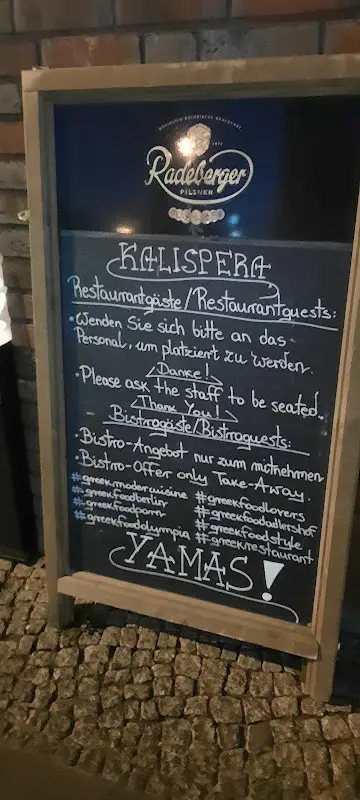 1872
Radeberger
PILSNER
KALISPERA
Restaurantgäste/Restaurantguests:
• Wenden Sie sich bitte an das
Personal, um platziert zu werden.
Danke!
• Please ask the staff to be seated.
Thank You!
Bistrogäste/Bistroguests:
• Bistro-Angebot nur zum mitnehmen
• Bistro-Offer only Take-Away.
#greekmoderncuisine #greekfoodlovers
#greekfoodberlin #greekfoodadlershof
#greekfoodporn #greekfoodstyle
#greekfoodolympia #greekrestaurant
YAMAS!